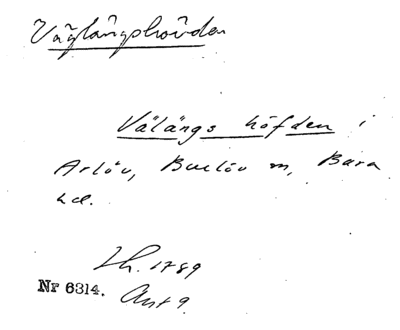 Väglångshövden
Välångs höfden i
Arlöv, Burlöv m, Bara
hd.
Lh. 1789
Nr 6314. Akt 9